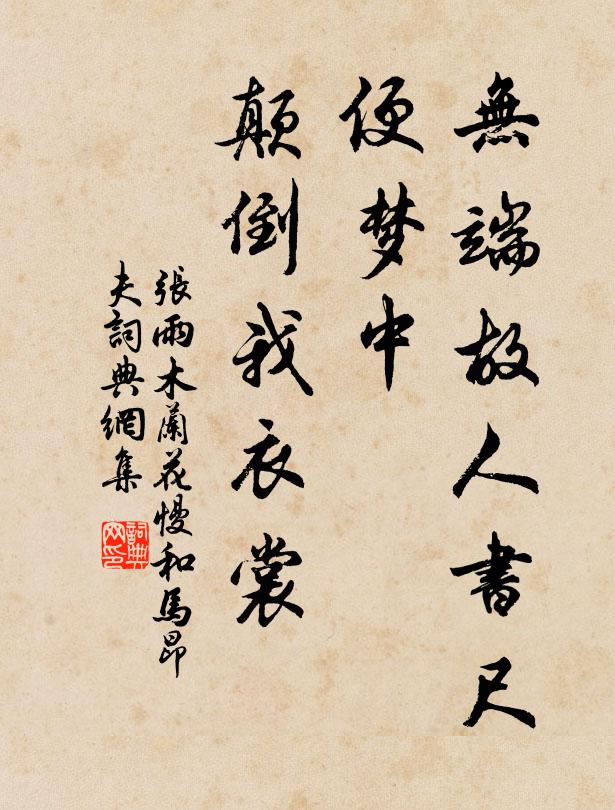 無端故人書尺
便梦中
顛倒我衣裳
張雨木蘭花慢和馬昂
夫詞典網集
詞典
网印